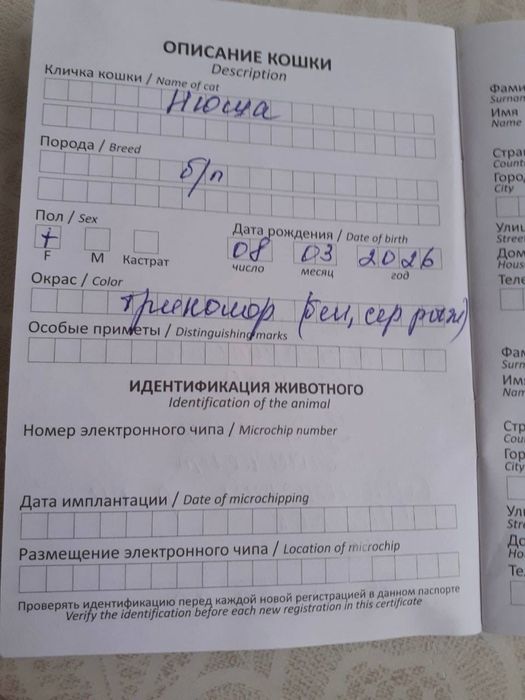 ОПИСАНИЕ КОШКИ
Description
Кличка кошки / Name of cat
Нюша
Порода / Breed
б/п
Пол / Sex
Дата рождения / Date of birth
+
08 03 2026
F M Кастрат
число месяц год
Окрас / Color
триколор (бел, сер рыж)
Особые приметы / Distinguishing marks
ИДЕНТИФИКАЦИЯ ЖИВОТНОГО
Identification of the animal
Номер электронного чипа / Microchip number
Дата имплантации / Date of microchipping
Размещение электронного чипа / Location of microchip
Проверять идентификацию перед каждой новой регистрацией в данном паспорте
Verify the identification before each new registration in this certificate
Фами
Surnam
Имя
Name
Стра
Count
Горо
City
Улиц
Stree
Дом
Hous
Теле
Фам
Surn
Им
Nam
Стр
Cou
Гор
City
Ули
Stre
До
Ho
Те